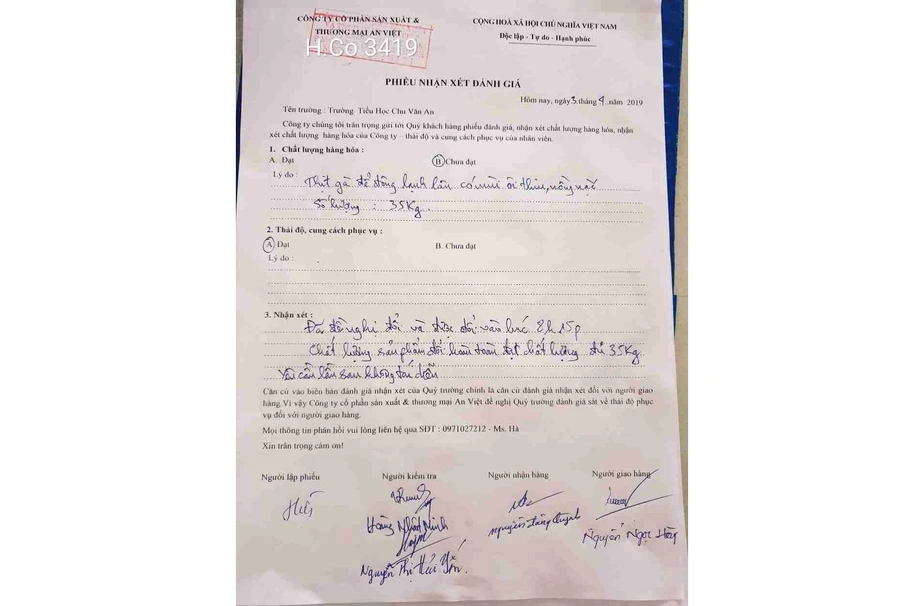 CÔNG TY CỔ PHẦN SẢN XUẤT &
THƯƠNG MẠI AN VIỆT
H.Co 3419
CỘNG HOÀ XÃ HỘI CHỦ NGHĨA VIỆT NAM
Độc lập - Tự do - Hạnh phúc
PHIẾU NHẬN XÉT ĐÁNH GIÁ
Hôm nay, ngày 3 tháng 9 năm 2019
Tên trường : Trường Tiểu Học Chu Văn An
Công ty chúng tôi trân trọng gửi tới Quý khách hàng phiếu đánh giá, nhận xét chất lượng hàng hóa, nhận
xét chất lượng hàng hóa của Công ty – thái độ và cung cách phục vụ của nhân viên.
1. Chất lượng hàng hóa :
A. Đạt
B. Chưa đạt
Lý do : Thịt gà để đông lạnh lâu có mùi ôi thiu, nồng nặc
Số lượng : 35Kg.
2. Thái độ, cung cách phục vụ :
A. Đạt
B. Chưa đạt
Lý do :
3. Nhận xét :
Đã đề nghị đổi và được đổi vào lúc 8h 15p
Chất lượng sản phẩm đổi hoàn toàn đạt chất lượng đủ 35Kg.
Yêu cầu lần sau không tái diễn
Căn cứ vào biên bản đánh giá nhận xét của Quý trường chính là căn cứ đánh giá nhận xét đối với người giao
hàng.Vì vậy Công ty cổ phần sản xuất & thương mại An Việt đề nghị Quý trường đánh giá sát về thái độ phục
vụ đối với người giao hàng.
Mọi thông tin phản hồi vui lòng liên hệ qua SĐT : 0971027212 - Ms. Hà
Xin trân trọng cảm ơn!
Người lập phiếu
Người kiểm tra
Người nhận hàng
Người giao hàng
Hoàng Nhật Minh
Nguyễn Thị Hải Yến.
Nguyễn Đăng Quỳnh
Nguyễn Ngọc